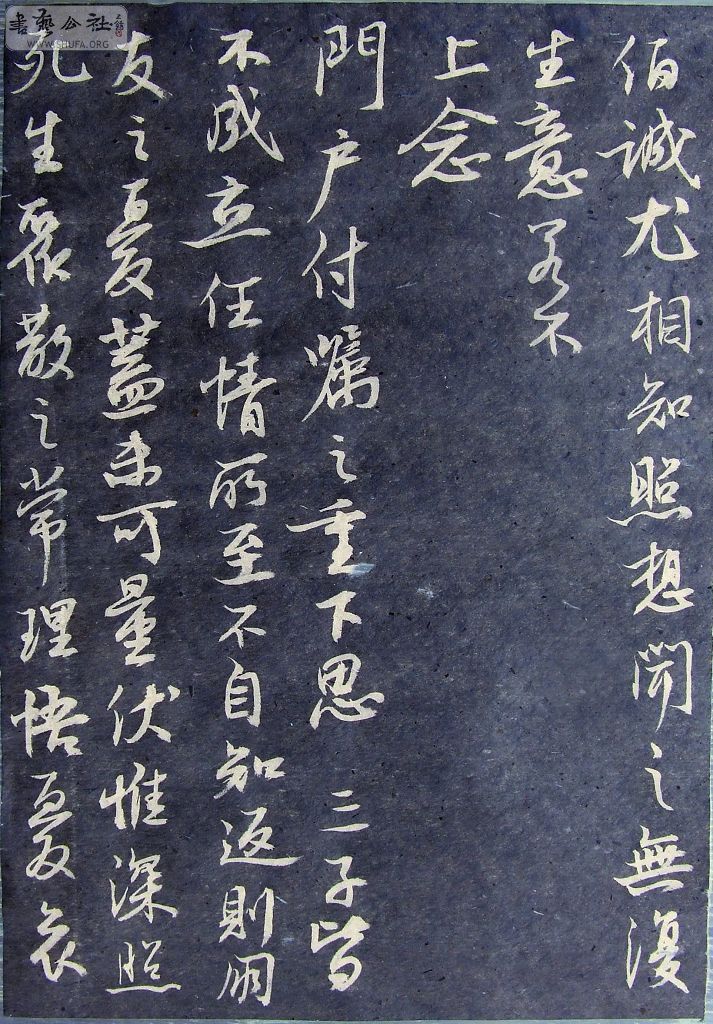 伯誠尤相知照想聞之無復
生意若不
上念
門户付囑之重下思三子皆
不成立任情所至不自知返則朋
友之憂蓋未可量伏惟深照
死生聚散之常理悟憂哀
書藝公社
WWW.SHUFA.ORG